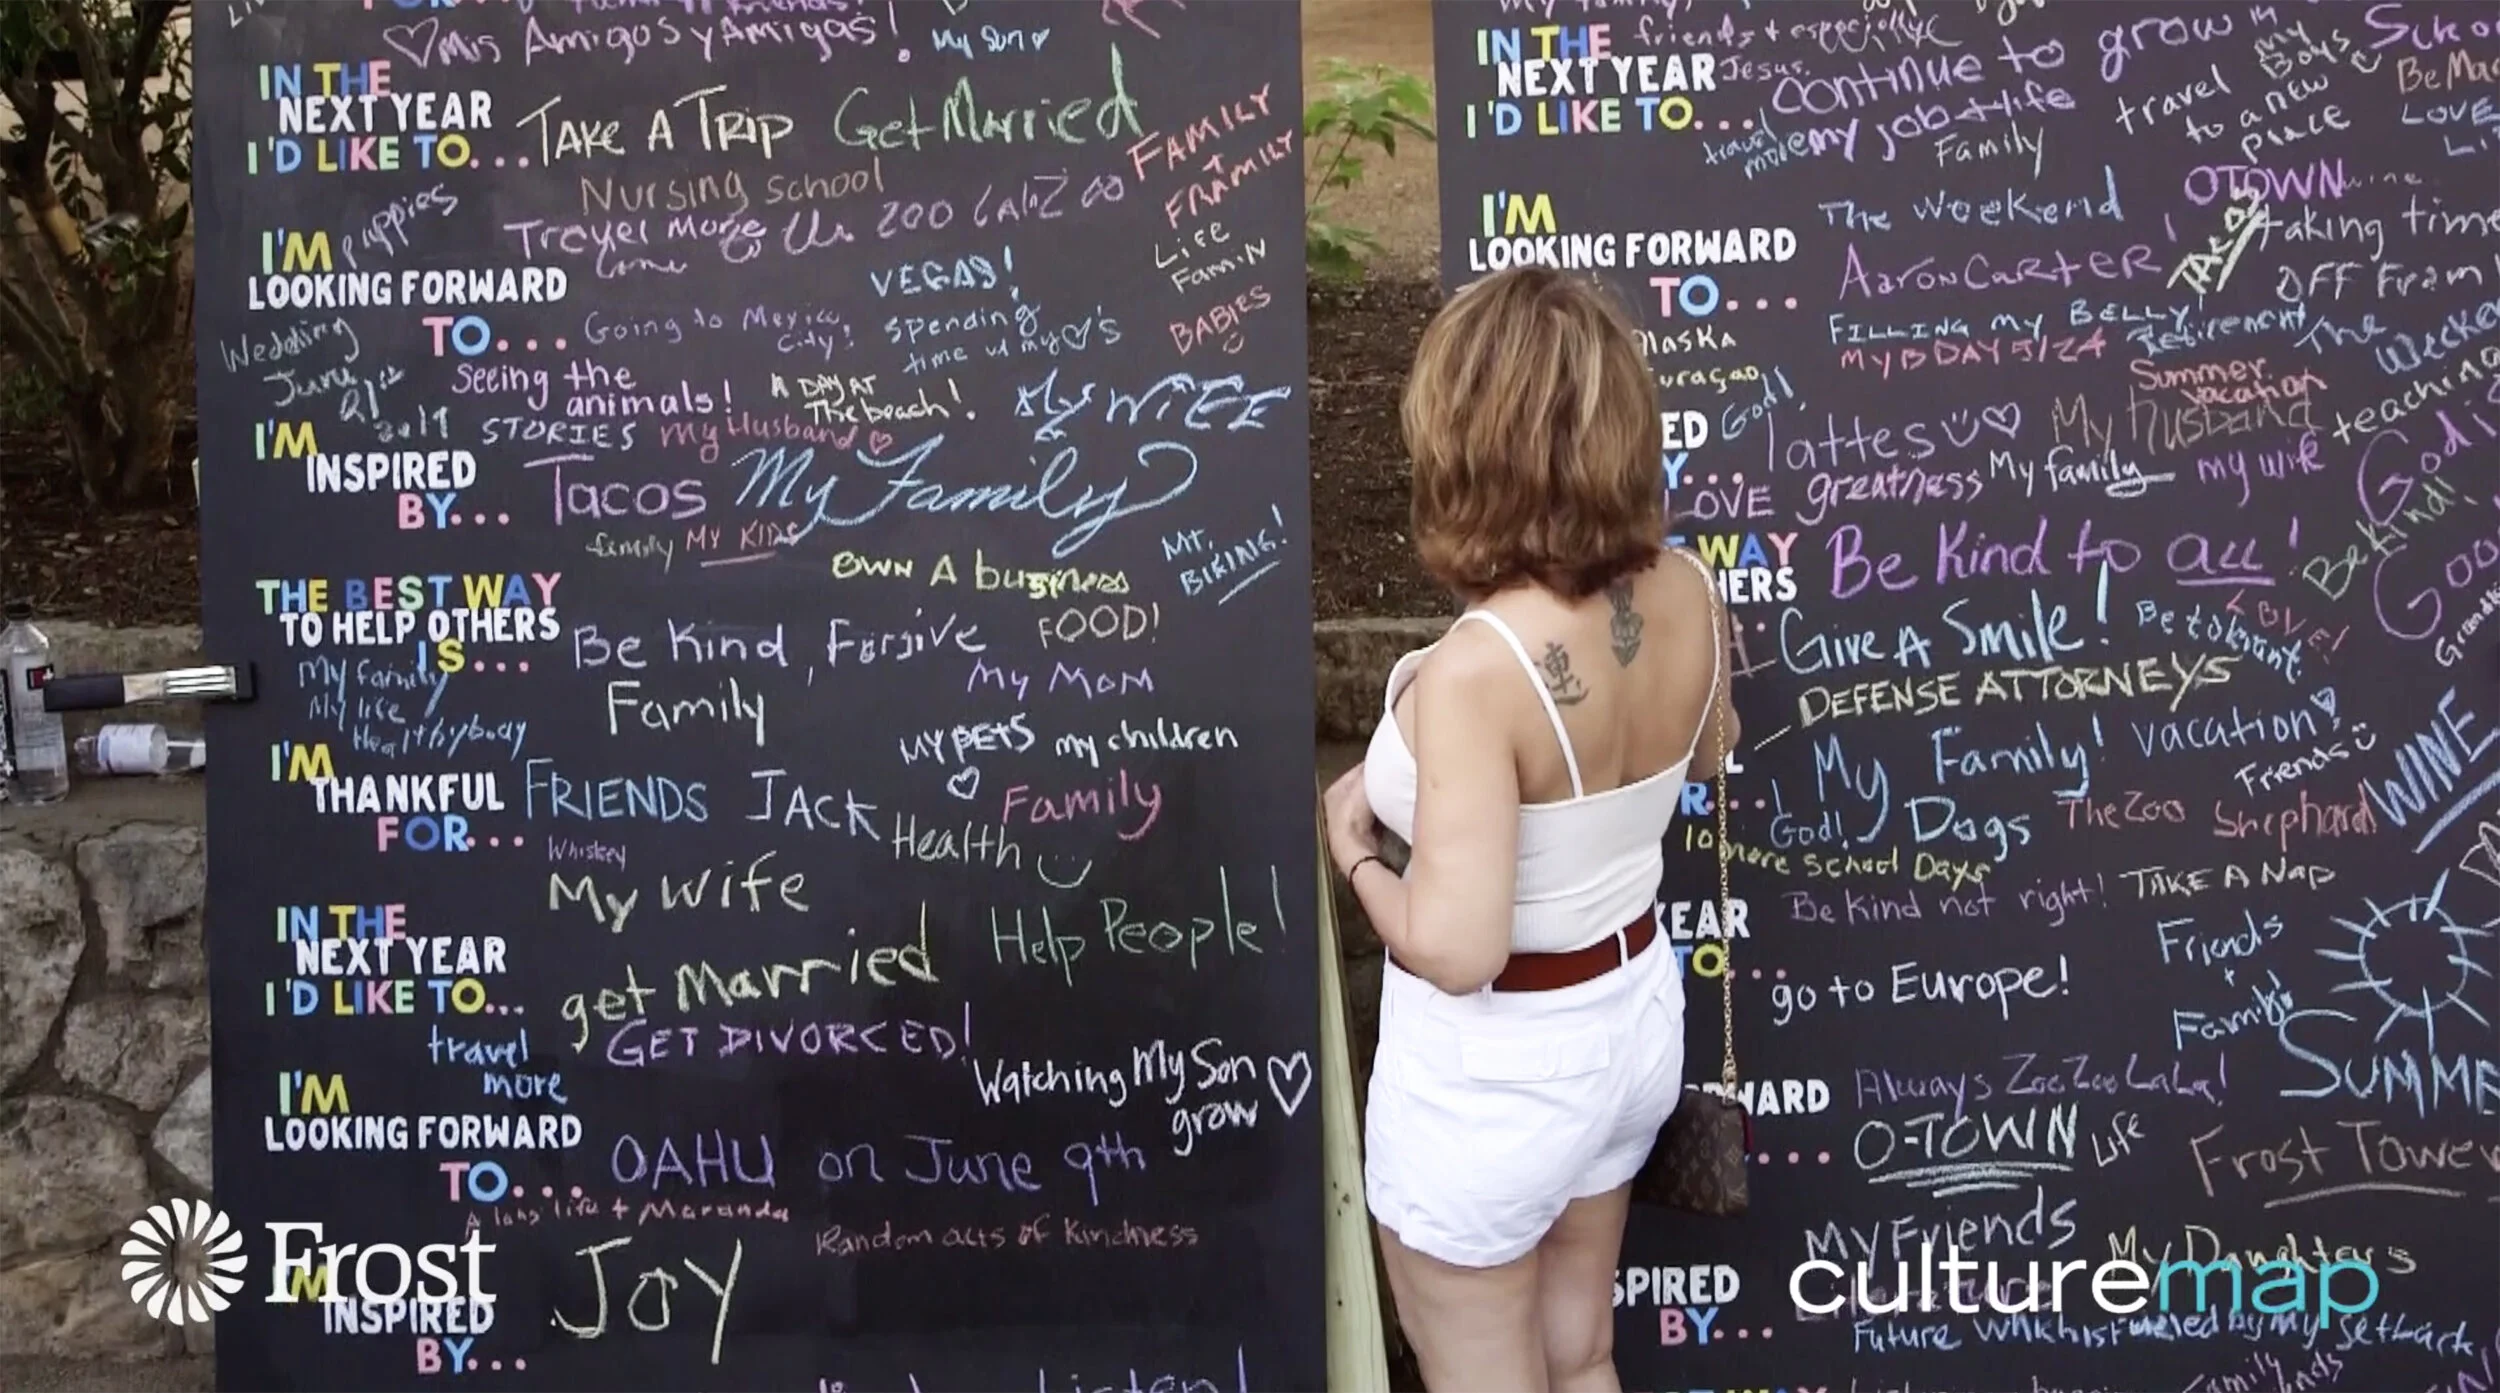 Mis Amigos y Amigas!
My Son
IN THE
NEXT YEAR
I'D LIKE TO...
TAKE A TRIP
Get Married
Nursing School
FAMILY
+
FRAMILY
puppies
Travel More
I'M
LOOKING FORWARD
TO...
VEGAS!
Life
BABIES
Going to Mexico
City!
spending
time w my ♡'s
Wedding
June
21st
2019
Seeing the
animals!
A DAY AT
The beach!
I'M
INSPIRED
BY...
STORIES
My Husband
My WIFE
Tacos
My Family
family
MY KIDS
OWN A business
MT.
BIKING!
THE BEST WAY
TO HELP OTHERS
IS...
Be Kind, Forgive
FOOD!
My family
My life
Healthy body
Family
My MOM
MY PETS
my children
I'M
THANKFUL
FOR...
FRIENDS
JACK
Family
Health
Whiskey
My Wife
IN THE
NEXT YEAR
I'D LIKE TO...
get Married
Help People!
GET DIVORCED!
travel
more
Watching My Son
grow
I'M
LOOKING FORWARD
TO...
OAHU on June 9th
A long life +
Random acts of Kindness
I'M
INSPIRED
BY...
JOY
Frost
IN THE
NEXT YEAR
I'D LIKE TO...
friends + especially
Jesus.
continue to grow in
my job + life
travel
more
Family
travel
to a new
place
My
Boys
LOVE
I'M
LOOKING FORWARD
TO...
The Weekend
OTOWN
wine
TACOS
taking time
OFF From
Aaron Carter!
FILLING MY BELLY!
MY BDAY 5/24
Retirement
The
Summer
vacation
teaching
Alaska
Curaçao
God!
lattes
My husband
LOVE
greatness
My family
my wife
God is
WAY
Be Kind to all!
Be Kind!
Give A Smile!
Be tolerant.
LOVE!
DEFENSE ATTORNEYS
My Family!
vacation
Friends
God!
Dogs
The Zoo
Shephard
WINE
10 more School Days
Be Kind not right!
TAKE A Nap
go to Europe!
Friends
+
Family
SUMME
Always ZooZooLaLa!
O-TOWN
Life
Frost Tower
MY Friends
My Daughters
SPIRED
BY...
culturemap